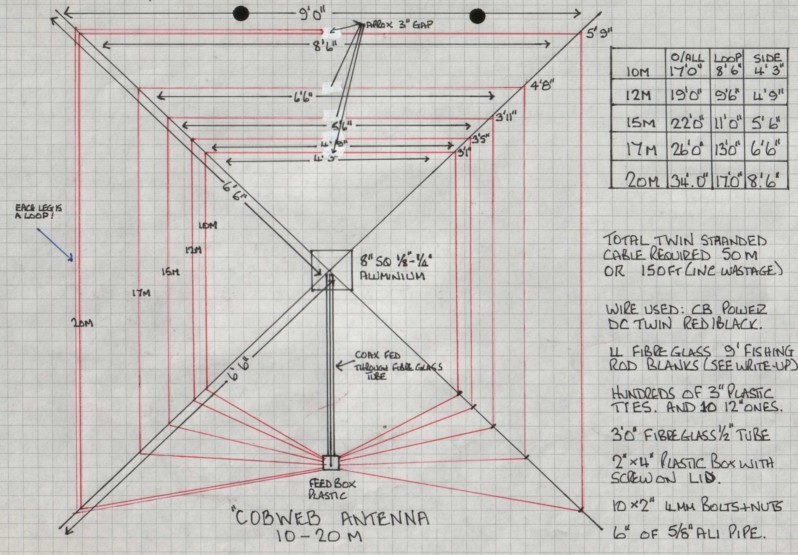 9'0"
APROX 3" GAP
8'6"
5'9"
4'8"
6'6"
3'11"
5'6"
3'5"
3'1"
6'6"
EACH LEG IS
A LOOP!
10M
12M
15M
17M
20M
8" SQ 1/8"-1/4"
ALUMINIUM
COAX FED
THROUGH FIBRE GLASS
TUBE
6'6"
FEED BOX
PLASTIC
"COBWEB ANTENNA
10-20 M
O/ALL LOOP SIDE
10M 17'0" 8'6" 4'3"
12M 19'0" 9'6" 4'9"
15M 22'0" 11'0" 5'6"
17M 26'0" 13'0" 6'6"
20M 34'.0" 17'0" 8'6"
TOTAL TWIN STRANDED
CABLE REQUIRED 50M
OR 150FT (INC WASTAGE)
WIRE USED: CB POWER
DC TWIN RED/BLACK.
4 FIBREGLASS 9' FISHING
ROD BLANKS (SEE WRITE-UP)
HUNDREDS OF 3" PLASTIC
TIES. AND 10 12" ONES.
3'0" FIBREGLASS 1/2" TUBE
2"x4" PLASTIC BOX WITH
SCREW ON LID.
10 x 2" 4MM BOLTS+NUTS
6" OF 5/8" ALI PIPE.